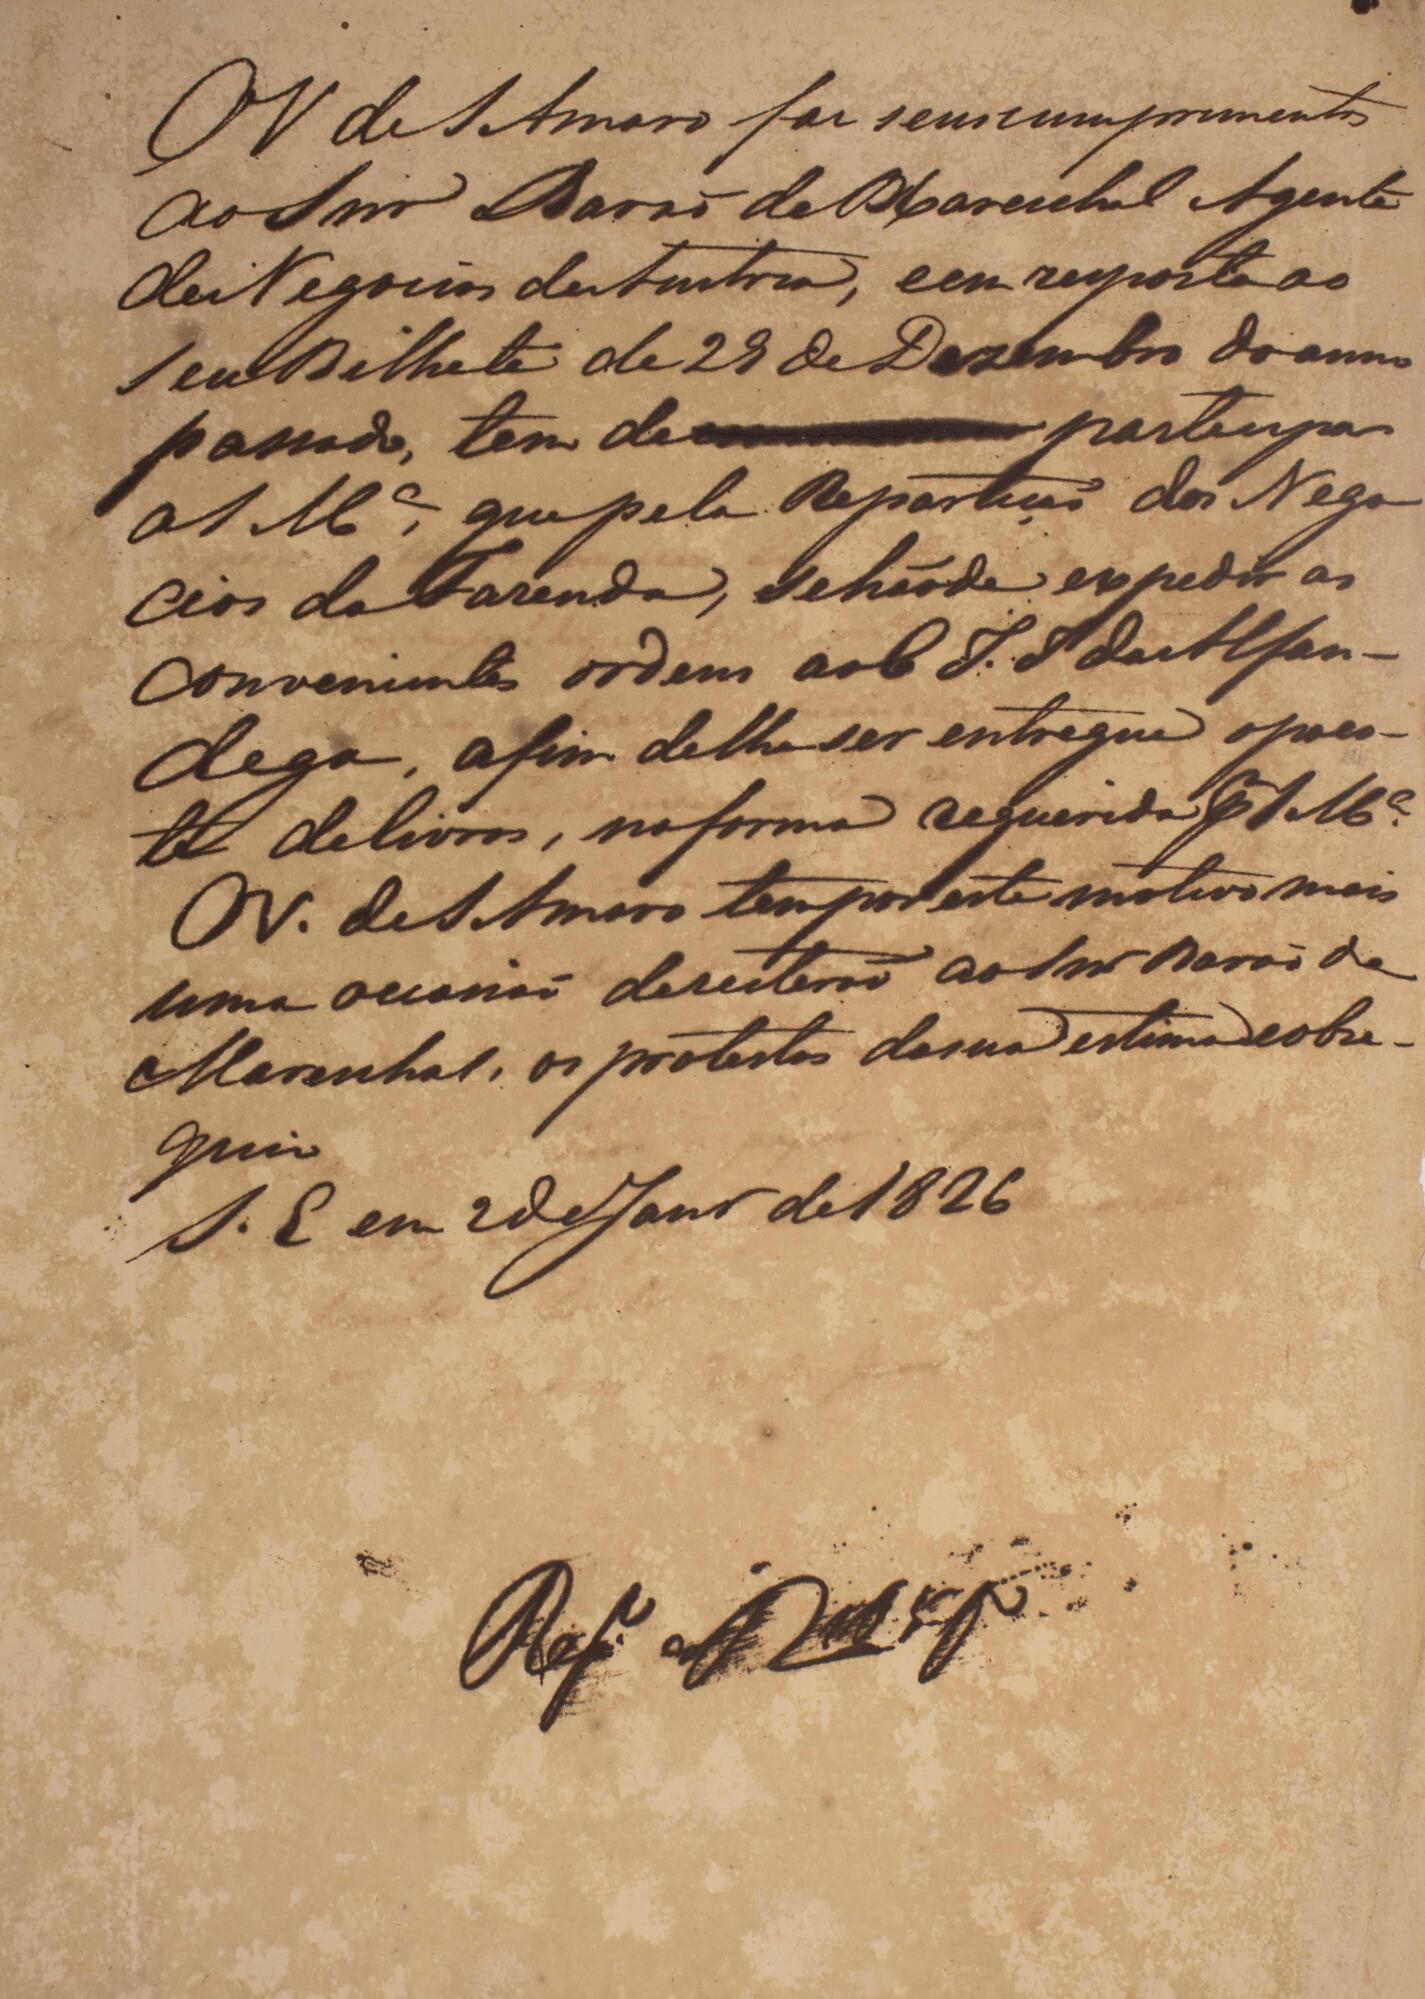 O V de S Amaro faz seus cumprimentos
ao Snr Barão de Mareschal Agente
de Negocios da Austria, e em resposta ao
seu Bilhete de 29 de Dezembro do anno
passado, tem de participar
a S Mce, que pela Repartição dos Nego
cios da Fazenda, se hãode expedir as
convenientes ordens ao C J. I da Alfan-
dega, afim de lhe ser entregue o paco-
te de livros, na forma requerida pr S Mce.
O V. de S Amaro tem por este motivo mais
uma occasião de reiterar ao Snr Barão de
Mareschal, os protestos da sua estima e obse-
quio
S. E em 2 de Janr de 1826